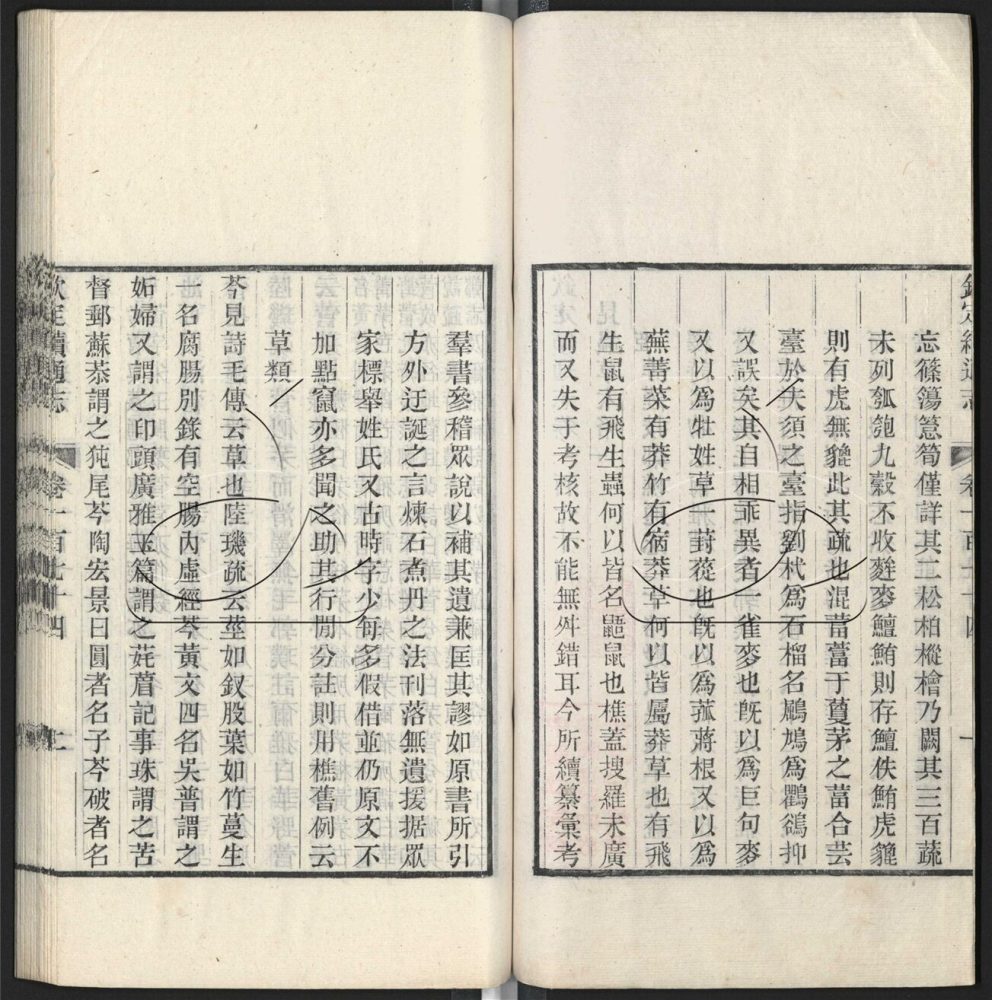 忘篠簜䈜筍僅詳其二松柏樅檜乃闕其三百蔬
未列瓠匏九穀不收䴰麥鱣鮪則存鱣佚鮪虎貔
則有虎無貔此其疏也混葍蕾于藑茅之葍合芸
臺於夫須之臺指劉杙為石榴名鷉鴆為鸜鵒抑
又誤矣其自相乖異者一雀麥也旣以為巨句麥
又以為牡姓草一葑蓯也旣以為菰蔣根又以為
蕪菁菜有莽竹有宿莽草何以皆屬莽草也有飛
生鼠有飛生蟲何以皆名鼯鼠也樵蓋搜羅未廣
而又失于考核故不能無舛錯耳今所續纂彙考
羣書參稽眾說以補其遺兼匡其謬如原書所引
方外迂誕之言煉石煮丹之法刊落無遺援据眾
家標舉姓氏又古時字少每多假借並仍原文不
加點竄亦多聞之助其行閒分註則用樵舊例云
草類
芩見詩毛傳云草也陸璣疏云莖如釵股葉如竹蔓生
一名腐腸別錄有空腸內虛經芩黃文四名吳普謂之
妬婦又謂之印頭廣雅玉篇謂之菧葿記事珠謂之苦
督郵蘇恭謂之㹠尾芩陶宏景曰圓者名子芩破者名
卷一百七十四